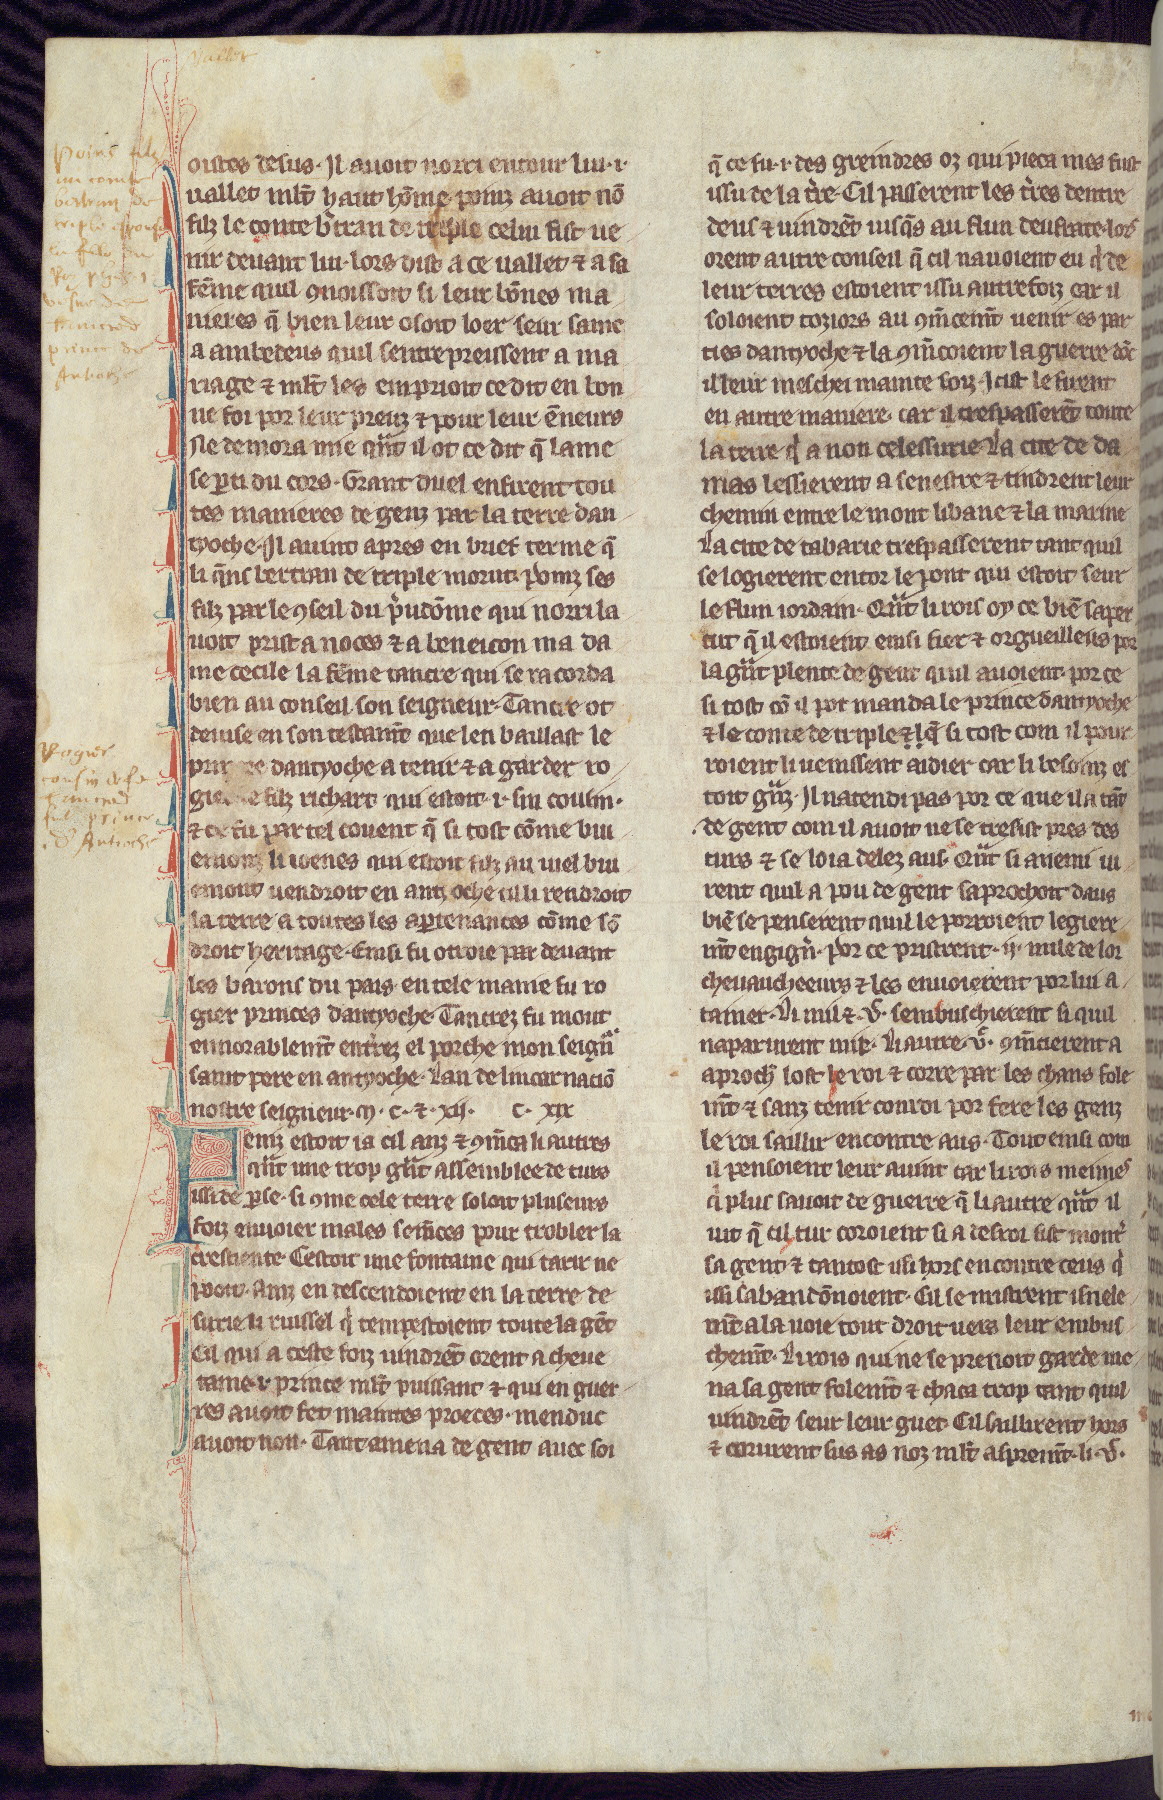 oustes desus. Il auoit norri entour lui .i.
uallet ml't haut hõme. poinz auoit nõ
filz le conte b'tran de triple celui fist ue
nir deuant lui. lors dist a ce uallet ⁊ a sa
fẽme quil ꝯnoissoit si leur bõnes ma
nieres q̃ bien leur osoit loer seur same
a ambedeus quil sentrepreissent a ma
riage ⁊ ml't les emprioit ce dit en bon
ne foi por leur preuz ⁊ pour leur ẽneurs
Ne demora mie q̃nt il ot ce dit q̃ lame
se ꝑti du cors. Grant duel enfirent tou
tes manieres de genz par la terre dan
tyoche. Il auint apres en brief terme q̃
li q̃ns bertran de triple morut. poinz ses
filz par le ꝯseil du p̃udõme qui norri la
uoit prist a noces ⁊ a beneicon ma da
me cecile la fẽme tancre qui se racorda
bien au conseil son seigneur. Tancre ot
deuise en son testam̃t que len baillast le
dantyoche a tenir ⁊ a garder ro
filz richart qui estoit .i. sin cousin.
⁊ ce fu par tel couent q̃ si tost cõme bui
emonz li ioenes qui estoit filz au uiel bui
emont uendroit en antyoche cil li rendroit
la terre a toutes les aꝑtenances cõme sõ
droit heritage. Einsi fu otroie par deuant
les barons du pais en tele manie fu ro
gier princes dantyoche. Tancrez fu mout
ennorablem̃t enterrez el porche mon seign̄
saint pere en antyoche. Lan de lincarnaciõ
nostre seigneur .m. c. ⁊ .xii. c. xix
enz estoit ia cil anz ⁊ ꝯm̃ca li autres
q̃nt une trop g̃nt assemblee de turs
issi de ꝑse. si ꝯme cele terre soloit pluseurs
foiz enuoier males sem̃ces pour trobler la
crestiente. Cestoit une fontaine qui tarir ne
pooit. Ainz en descendoient en la terre de
surie li ruissel q̃ tempestoient toute la gẽt
Cil qui a ceste foiz uindrẽt orent a cheue
taine .i. prince ml't puissant ⁊ qui en guer
res auoit fet maintes proeces. menduc
auoit non. Tant amena de gent auec soi
q̃ ce fu .i. des greindres oz qui pieca mes fust
issu de la t̃re. Cil passerent les t̃res dentre
deus ⁊ uindrẽt iusq̃s au flun deufrate. lors
orent autre conseil q̃ cil nauoient eu q̃ de
leur terres estoient issu autrefoiz car il
soloient toziors au ꝯm̃cem̃t uenir es par
ties dantyoche ⁊ la ꝯm̃coient la guerre dõt
il leur meschei mainte foiz. Icist le firent
en autre maniere. car il trespasserẽt toute
la terre q̃ a non celessurie. La cite de da
mas lessierent a senestre ⁊ tindrent leur
chemin entre le mont libane ⁊ la marine
La cite de tabarie trespasserent tant quil
se logierent entor le pont qui estoit seur
le flun iordain. Q̃nt li rois oy ce biẽ saper
cut q̃ il estoient einsi fier ⁊ orgueilleus por
la g̃nt plente de gent quil auoient. por ce
si tost cõ il pot manda le prince dantyoche
⁊ le conte de triple ⁊ q̃ si tost com il pour
roient li uenissent aidier car li besoinz es
toit g̃nz. Il natendi pas por ce que il a tãt
de gent com il auoit ne se tresist pres des
turs ⁊ se loia delez aus. Q̃nt si anemi ui
rent quil a pou de gent saprochoit daus
biẽ se penserent quil le porroient legiere
m̃t engign̄. por ce pristrent .ii. mile de lor
cheuaucheeurs ⁊ les enuoierent por lui a
tainer. Li mil ⁊ .vᶜ. sembuschierent si quil
naparurent mie. Li autre .vᶜ. ꝯm̃cierent a
aproch̃ lost le roi ⁊ corre par les chans fole
m̃t ⁊ sanz tenir conroi por fere les genz
le roi saillir encontre aus. Tout einsi com
il pensoient leur auint car li rois meimes
q̃ plus sauoit de guerre q̃ li autre q̃nt il
uit q̃ cil tur coroient si a desroi fist mont̃
sa gent ⁊ tantost issi hors encontre ceus q̃
issi sabandõnoient. Cil se mistrent isnele
m̃t a la uoie tout droit uers leur embus
chem̃t. Li rois qui ne se prenoit garde me
na sa gent folem̃t ⁊ chaca trop tant quil
uindrẽt seur leur guet. Cil saillirent hors
⁊ corurent sus as noz ml't asprem̃t. li .vᶜ.